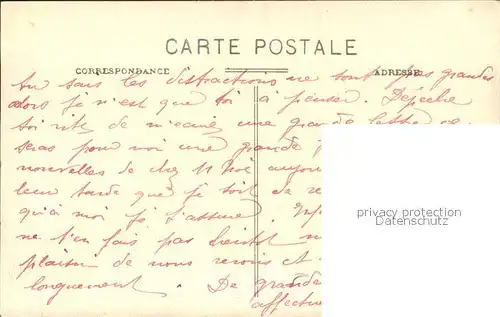 CARTE POSTALE
CORRESPONDANCE ADRESSE
sans les distractions ne sont pas grandes
alors je n'est que toi a penser. Depeche
toi vite de m'ecrire une grande lettre ce
seras pour moi une grande
nouvelles de chez
leur tarde que je soit de
qu'a moi je t'assure.
ne t'en fais pas bientot
plaisir de nous revoir et
longuement. De grande
affectu
privacy protection
Datenschutz